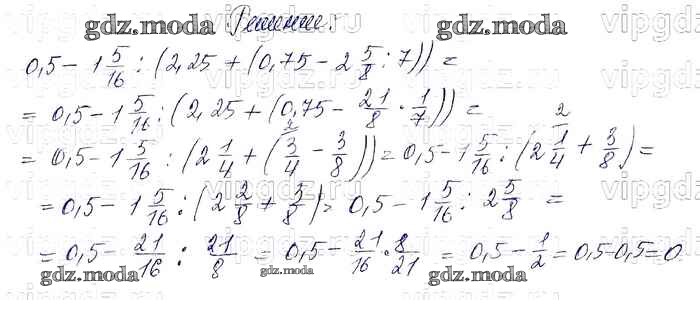 Решение:
gdz.moda gdz.moda
0,5 - 1 5/16 : (2,25 + (0,75 - 2 5/8 : 7)) =
= 0,5 - 1 5/16 : (2,25 + (0,75 - 21/8 · 1/7)) =
= 0,5 - 1 5/16 : (2 1/4 + (3/4 - 3/8)) = 0,5 - 1 5/16 : (2 1/4 + 3/8) =
= 0,5 - 1 5/16 : (2 2/8 + 3/8) = 0,5 - 1 5/16 : 2 5/8 =
= 0,5 - 21/16 : 21/8 = 0,5 - 21/16 · 8/21 = 0,5 - 1/2 = 0,5 - 0,5 = 0
gdz.moda gdz.moda gdz.moda